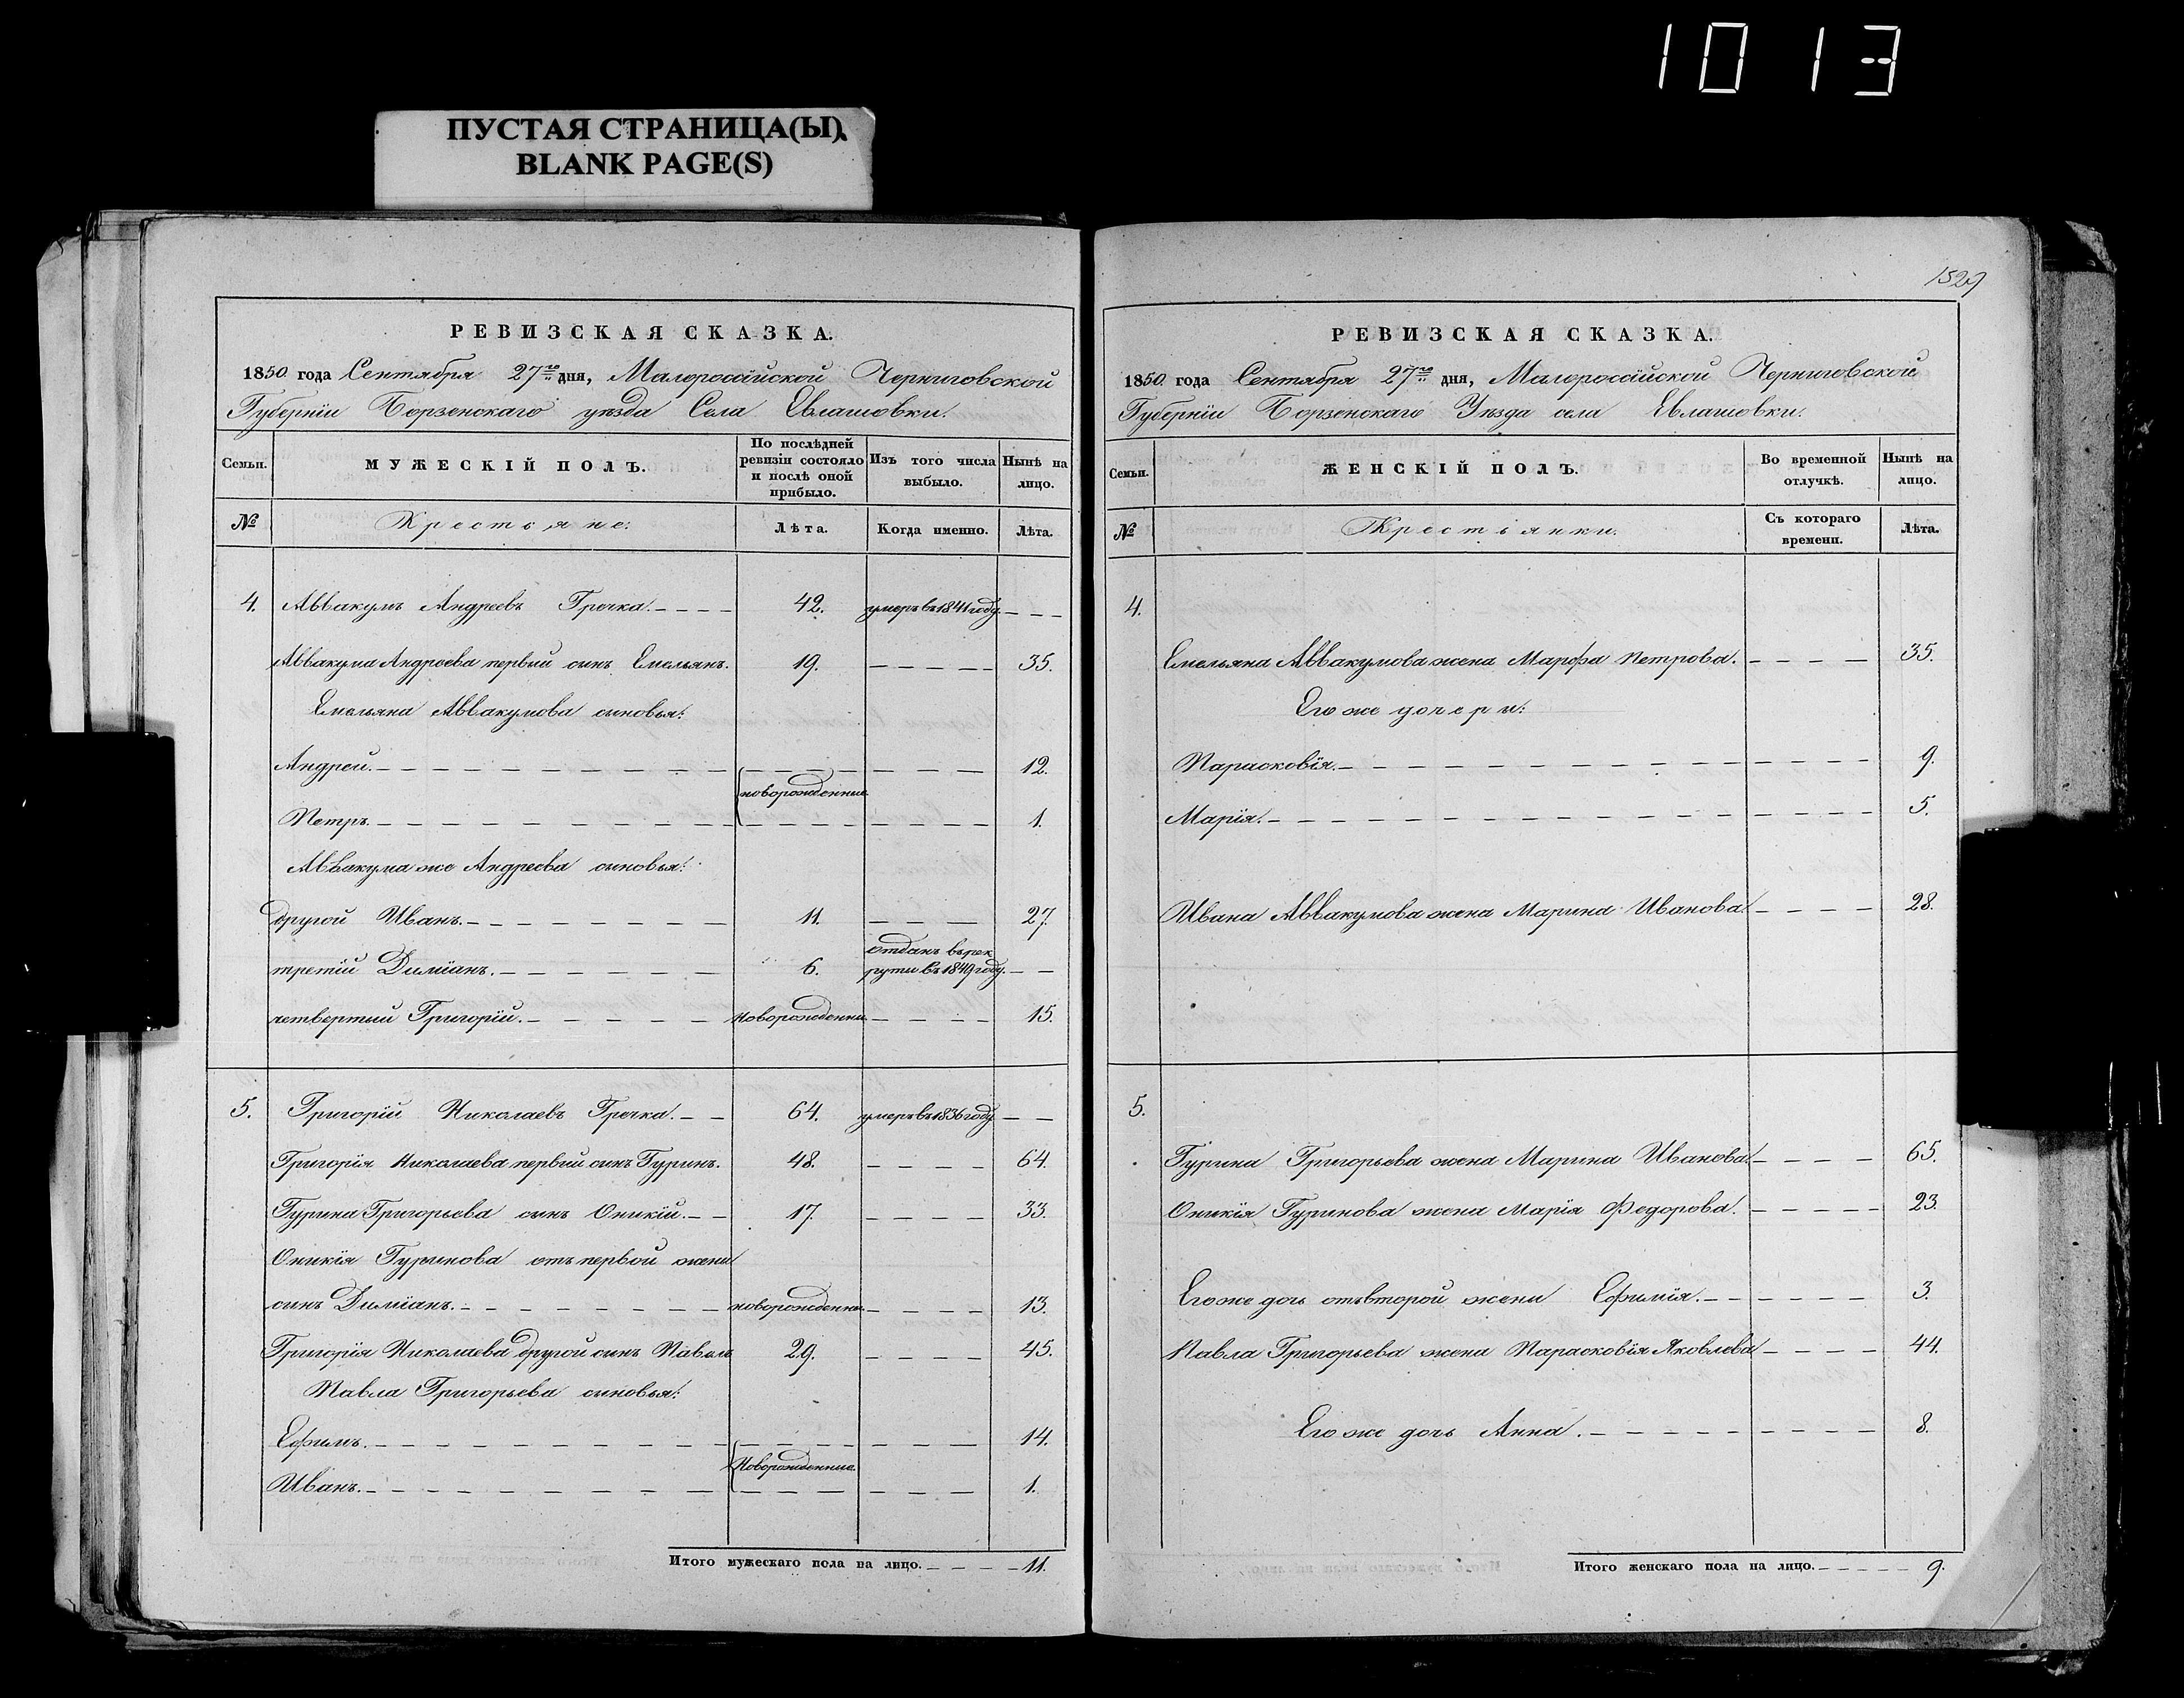 1013
ПУСТАЯ СТРАНИЦА(Ы)
BLANK PAGE(S)
РЕВИЗСКАЯ СКАЗКА.
1850. года Сентября 27го дня, Малороссійской Черниговской
Губерніи Борзенскаго уѣзда Села Евлашовки.
Семьи. МУЖЕСКІЙ ПОЛЪ. По послѣдней ревизіи состояло и послѣ оной прибыло. Изъ того числа выбыло. Нынѣ на лицо.
№ Крестьяне: Лѣта. Когда именно. Лѣта.
4. Аввакумъ Андреевъ Гречка. 42. умеръ въ 1841 году.
Аввакума Андреева первый сынъ Емельянъ. 19. 35.
Емельяна Аввакумова сыновья:
Андрей. 12.
новорожденные.
Петръ. 1.
Аввакума же Андреева сыновья:
другой Иванъ. 11. 27.
отданъ въ рек
третій Диміанъ. 6. руты въ 1849 году.
четвертый Григорій. Новорожденны 15.
5. Григорій Николаевъ Гречка. 64. умеръ въ 1836 году.
Григорія Николаева первый сынъ Гуринъ. 48. 64.
Гурина Григорьева сынъ Оникій. 17. 33.
Оникія Гуринова отъ первой жены
сынъ Диміанъ. новорожденны. 13.
Григорія Николаева другой сынъ Павелъ 29. 45.
Павла Григорьева сыновья:
Ефимъ. 14.
Новорожденные.
Иванъ. 1.
Итого мужескаго пола на лицо. 11.
1529
РЕВИЗСКАЯ СКАЗКА.
1850. года Сентября 27го дня, Малороссійской Черниговской
Губерніи Борзенскаго Уѣзда села Евлашовки.
Семьи. ЖЕНСКІЙ ПОЛЪ. Во временной отлучкѣ. Нынѣ на лицо.
№ Крестьянки. Съ котораго времени. Лѣта.
4.
Емельяна Аввакумова жена Марфа Петрова. 35.
Его же дочери:
Парасковія. 9.
Марія. 5.
Ивана Аввакумова жена Марина Иванова. 28.
5.
Гурина Григорьева жена Марина Иванова. 65.
Оникія Гуринова жена Марія Федорова. 23.
Его же дочь отъ второй жены Ефимія. 3.
Павла Григорьева жена Парасковія Яковлева 44.
Его же дочь Анна. 8.
Итого женскаго пола на лицо. 9.